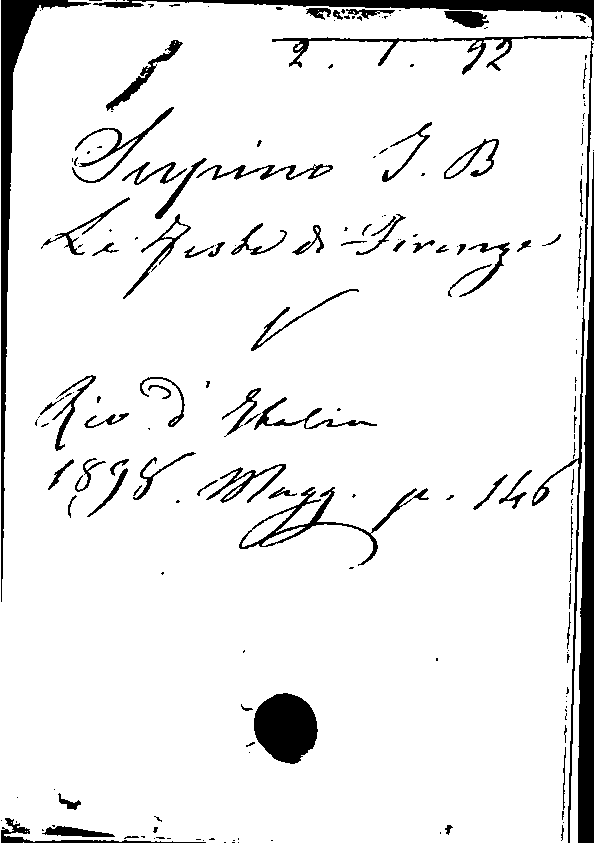 2. 1. 92
Supino I. B
Le Feste di Firenze
V
Riv d' Italia
1898. Magg. p. 146